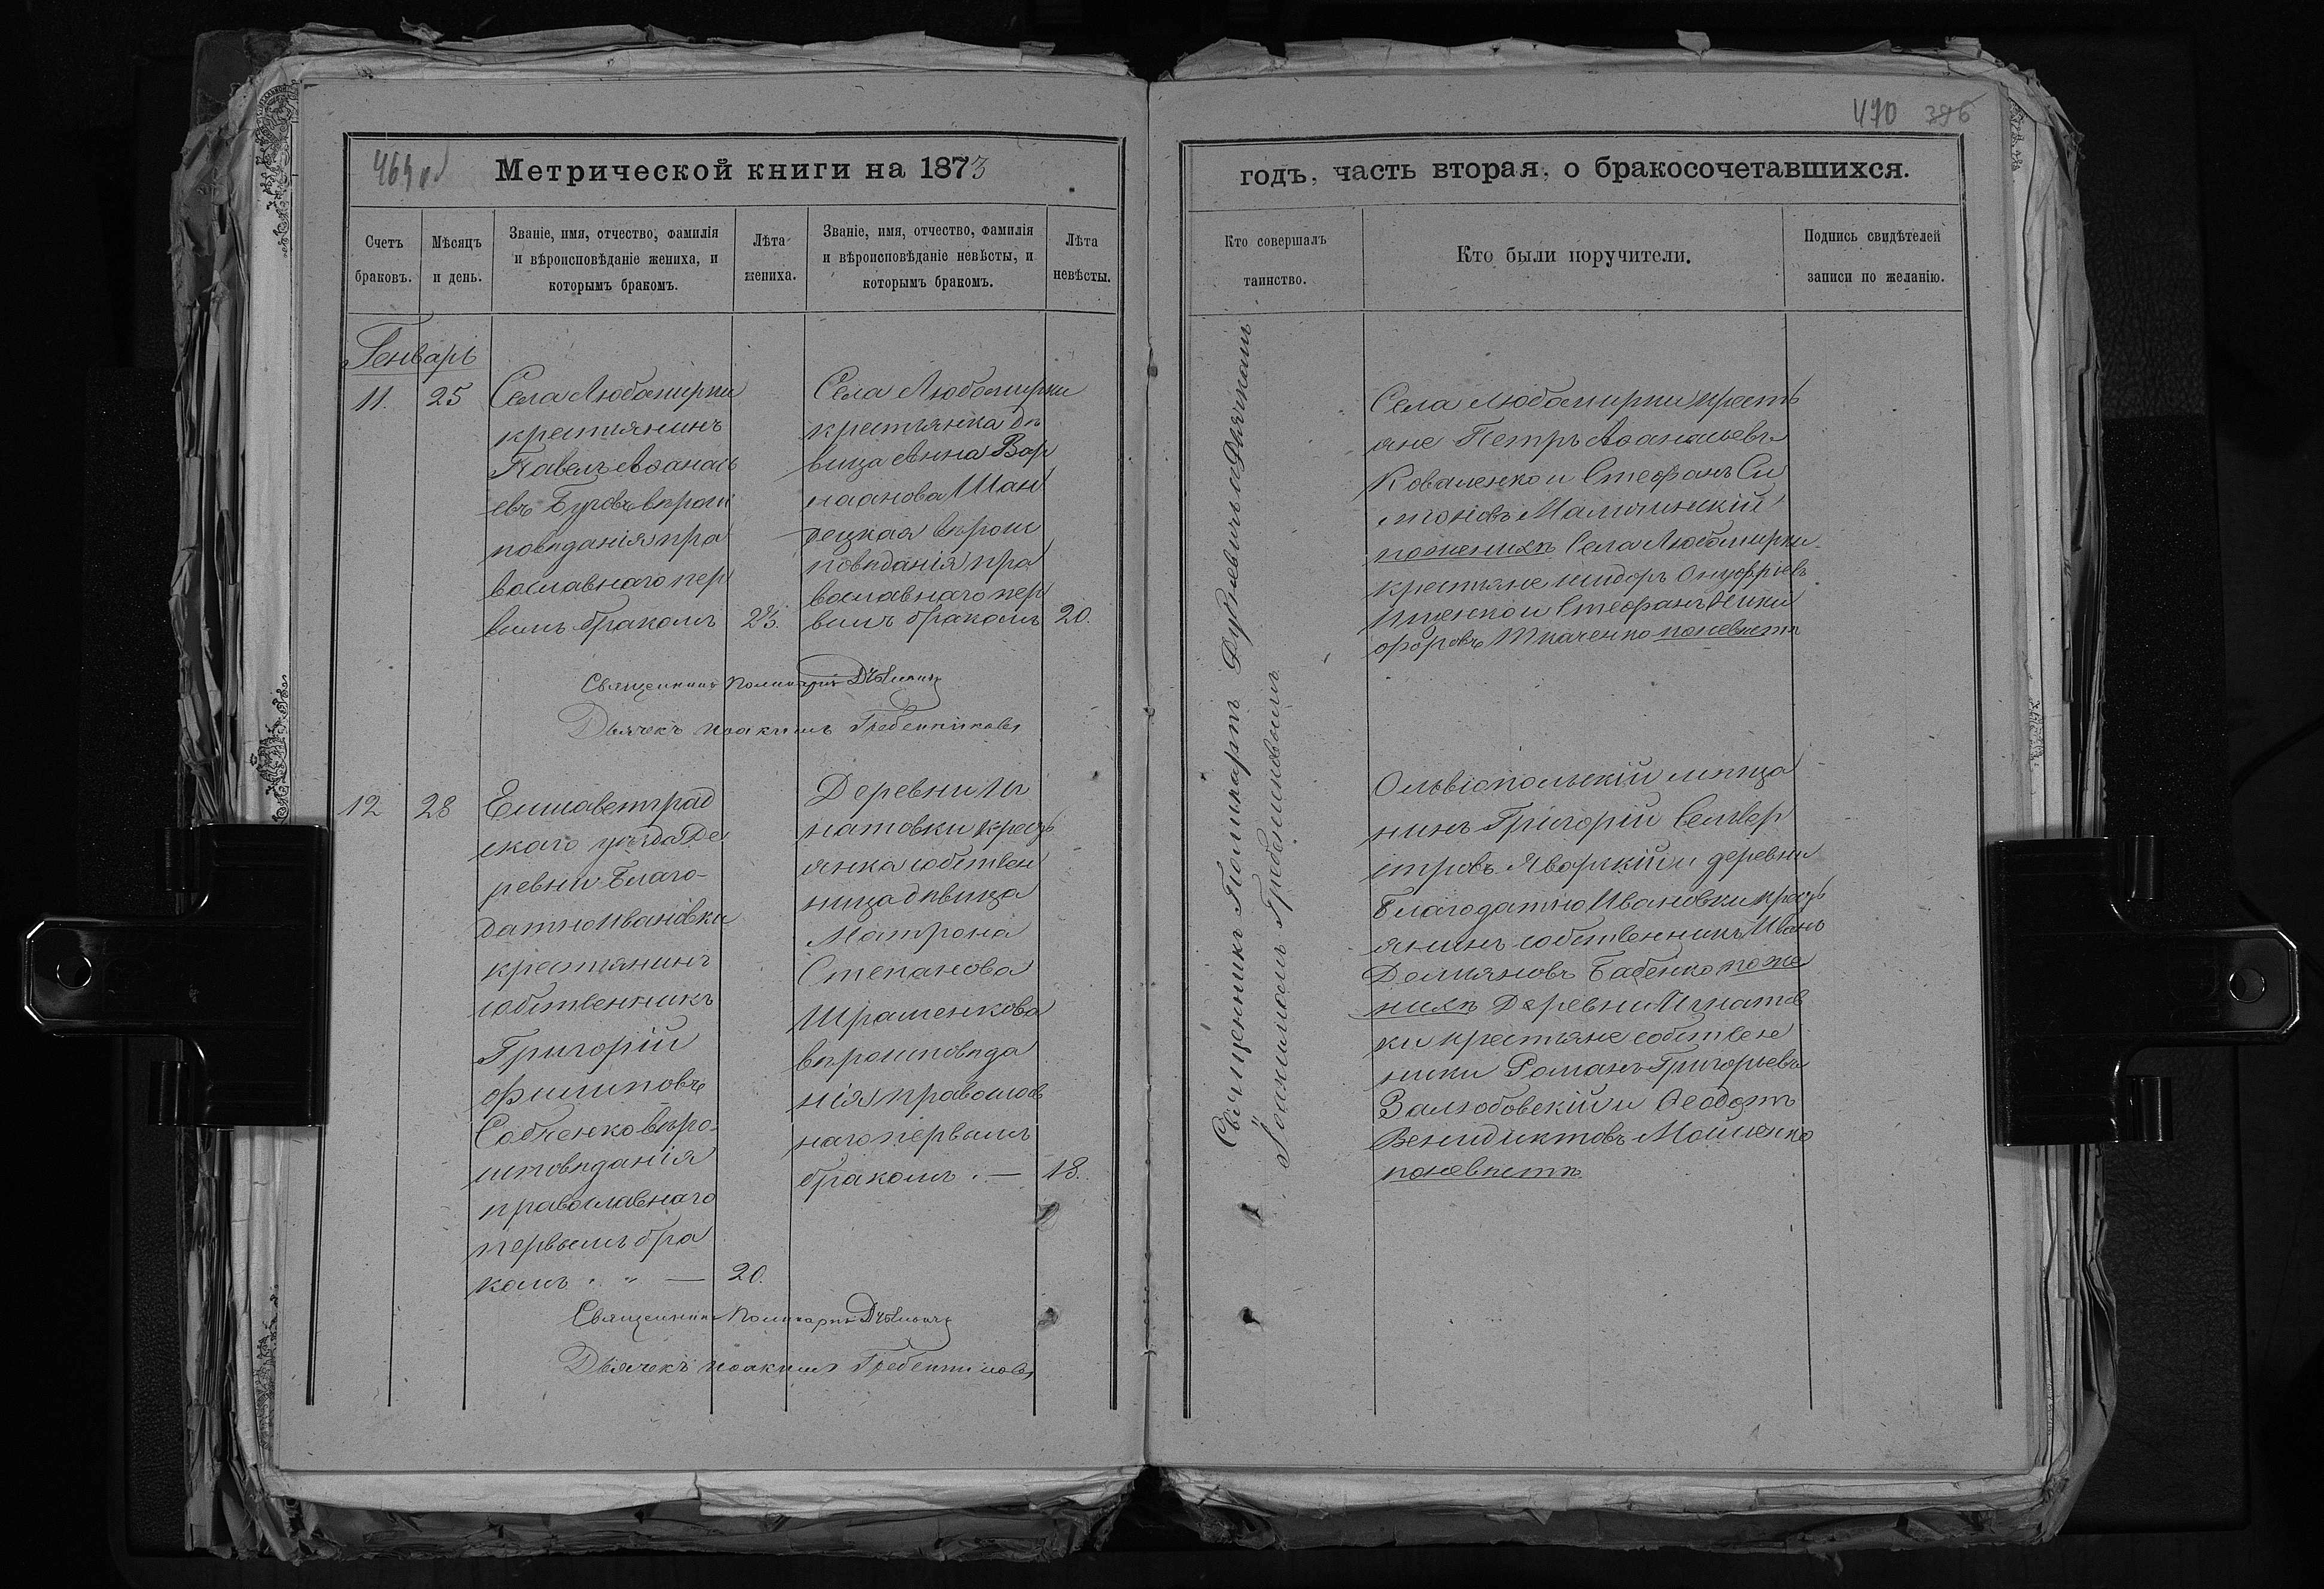 469 об
Метрической книги на 1873
Счетъ браковъ.
Мѣсяцъ и день.
Званіе, имя, отчество, фамилія и вѣроисповѣданіе жениха, и которымъ бракомъ.
Лѣта жениха.
Званіе, имя, отчество, фамилія и вѣроисповѣданіе невѣсты, и которымъ бракомъ.
Лѣта невѣсты.
Генварь
11.
25
Села Любомирки
крестянинъ
Павелъ Аѳанась
евъ Буровъ вѣроис
повѣданія пра
вославнаго пер
вымъ бракомъ
23.
Села Любомирки
крестянка дѣ
вица Анна Вар
лаанова Шан
децкая вѣроис
повѣданія пра
вославнаго пер
вимъ бракомъ
20.
Священникъ Поликарпъ
Дьячекъ Иоакимъ Гребенниковъ
12
28
Елисаветград
скаго уѣзда де
ревни Благо-
датно Ивановки
крестянинъ
собственникъ
Григорій
Филиповъ
Собченко вѣро-
исповѣданія
православнаго
первымъ бра
комъ . „ —
20.
Деревни Иг
натовки крест
янка собствен
ница дѣвица
Матрона
Степанова
Шраменкова
вѣроисповѣда
нія православ
наго первымъ
бракомъ . —
18.
Священникъ Поликарпъ
Дьячекъ Иоакимъ Гребенниковъ
470 396
годъ, часть вторая, о бракосочетавшихся.
Кто совершалъ таинство.
Кто были поручители.
Подпись свидѣтелей записи по желанію.
Священникъ Поликарпъ съ Дьячкомъ
Іоакимомъ Гребениковымъ
Села Любомирки крестъ
яне Петръ Аѳанасьевъ
Коваленко и Стефанъ Си
моновъ Малишскій
по женихѣ Села Любомирки
крестяне Исидоръ Онуфріевъ
Ищенко и Стефанъ Ники
форовъ Ткаченко по невѣстѣ
Ольвіопольскій мѣща
нинъ Григорій Селивер
стровъ Яворскій и деревни
Благодатно Ивановки крест
янинъ собственникъ Иванъ
Демяновъ Бабенко по же
нихѣ Деревни Игнатов
ки крестяне собствен
ники Романъ Григорьевъ
Залюбовскій и Ѳеодотъ
Венидиктовъ Мойсенко
по невѣстѣ